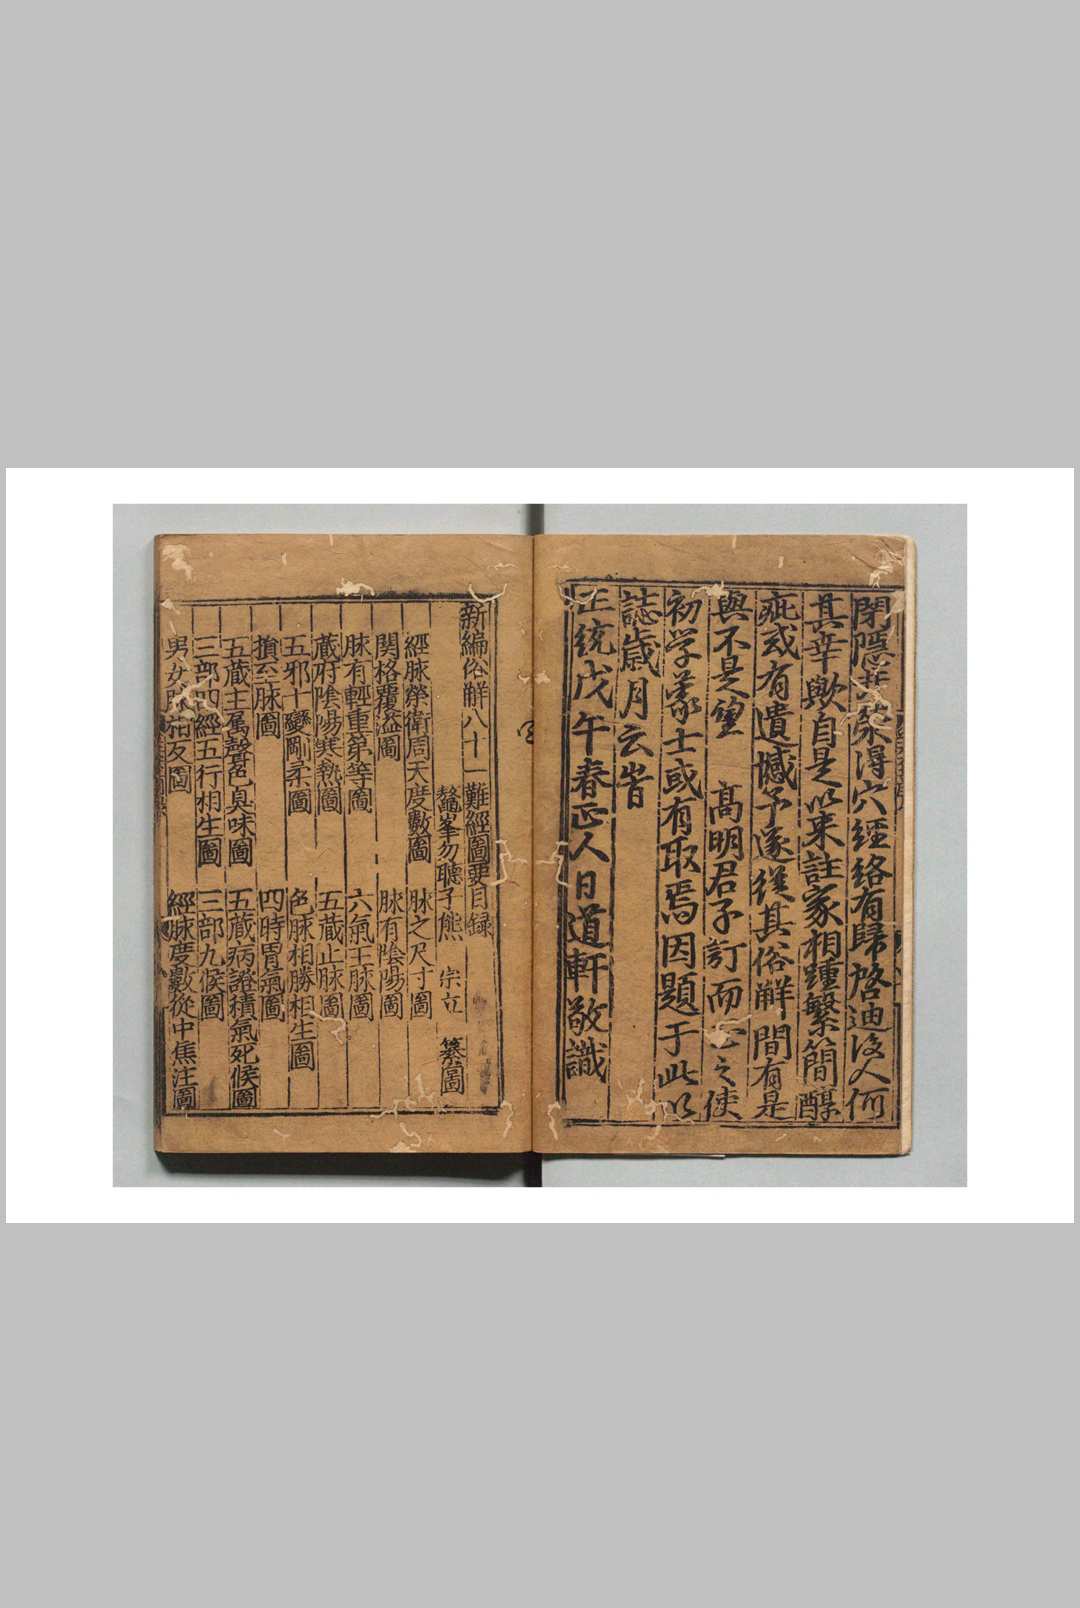 閉隱其榮得穴經絡有歸啓迪後人何
其幸歟自是以来註家相踵繁簡醇
疵或有遺憾予遂從其俗解間有是
與不是望　髙明君子訂而正之使
初学蒙士或有取焉因題于此以
誌歲月云旹
正統戊午春正人日道軒敬識
新編俗觧八十一難經圖要目録
鼇峯勿聽子熊　宗立　纂圖
經脉榮衛周天度數圖　脉之尺寸圖
関格覆溢圖　脉有陰陽圖
脉有輕重第等圖　六氣王脉圖
蔵府陰陽寒熱圖　五蔵止脉圖
五邪十變剛柔圖　色脉相勝相生圖
損至脉圖　四時胃氣圖
五蔵主属聲色臭味圖　五蔵病證積氣死候圖
三部四經五行相生圖　三部九候圖
男女脉相反圖　經脉度數從中焦注圖